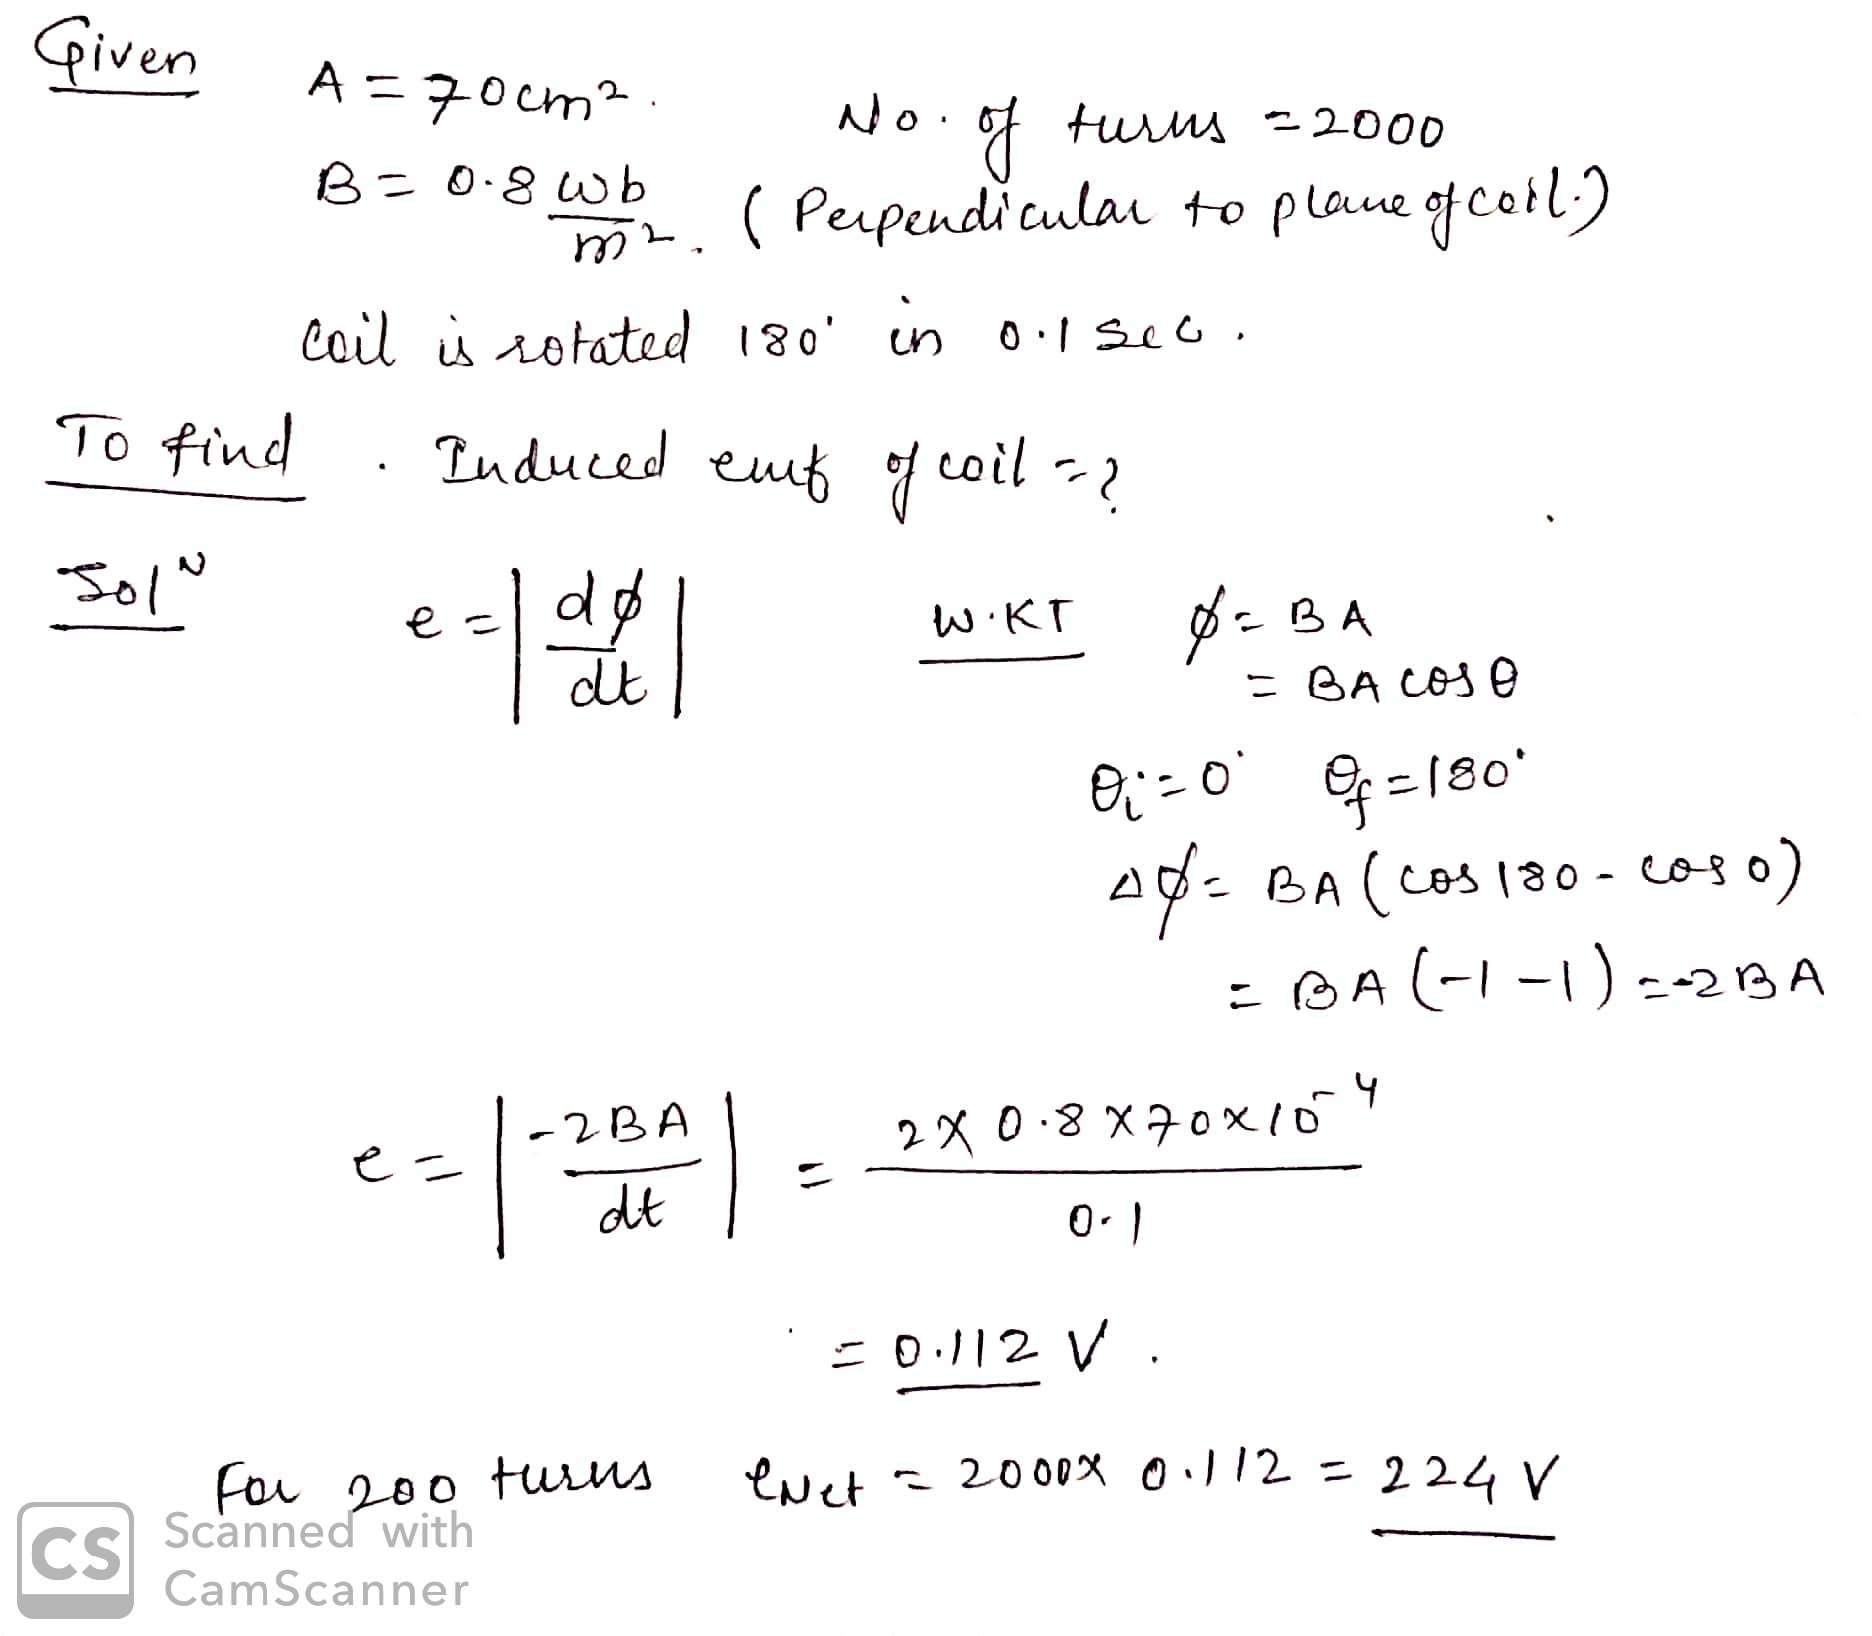 Given A = 70cm². No. of turns = 2000
B = 0.8 wb/m². (Perpendicular to plane of coil.)
Coil is rotated 180° in 0.1 sec.
To find . Induced emf of coil = ?
Solᴺ e = |dϕ/dt| W.KT ϕ = BA
= BA cos θ
θi = 0° θf = 180°
Δϕ = BA (cos 180 - cos 0)
= BA (-1 -1) = -2BA
e = |-2BA/dt| = 2 x 0.8 x 70 x 10⁻⁴/0.1
= 0.112 V.
For 200 turns eNet = 2000x 0.112 = 224 V
CS Scanned with
CamScanner